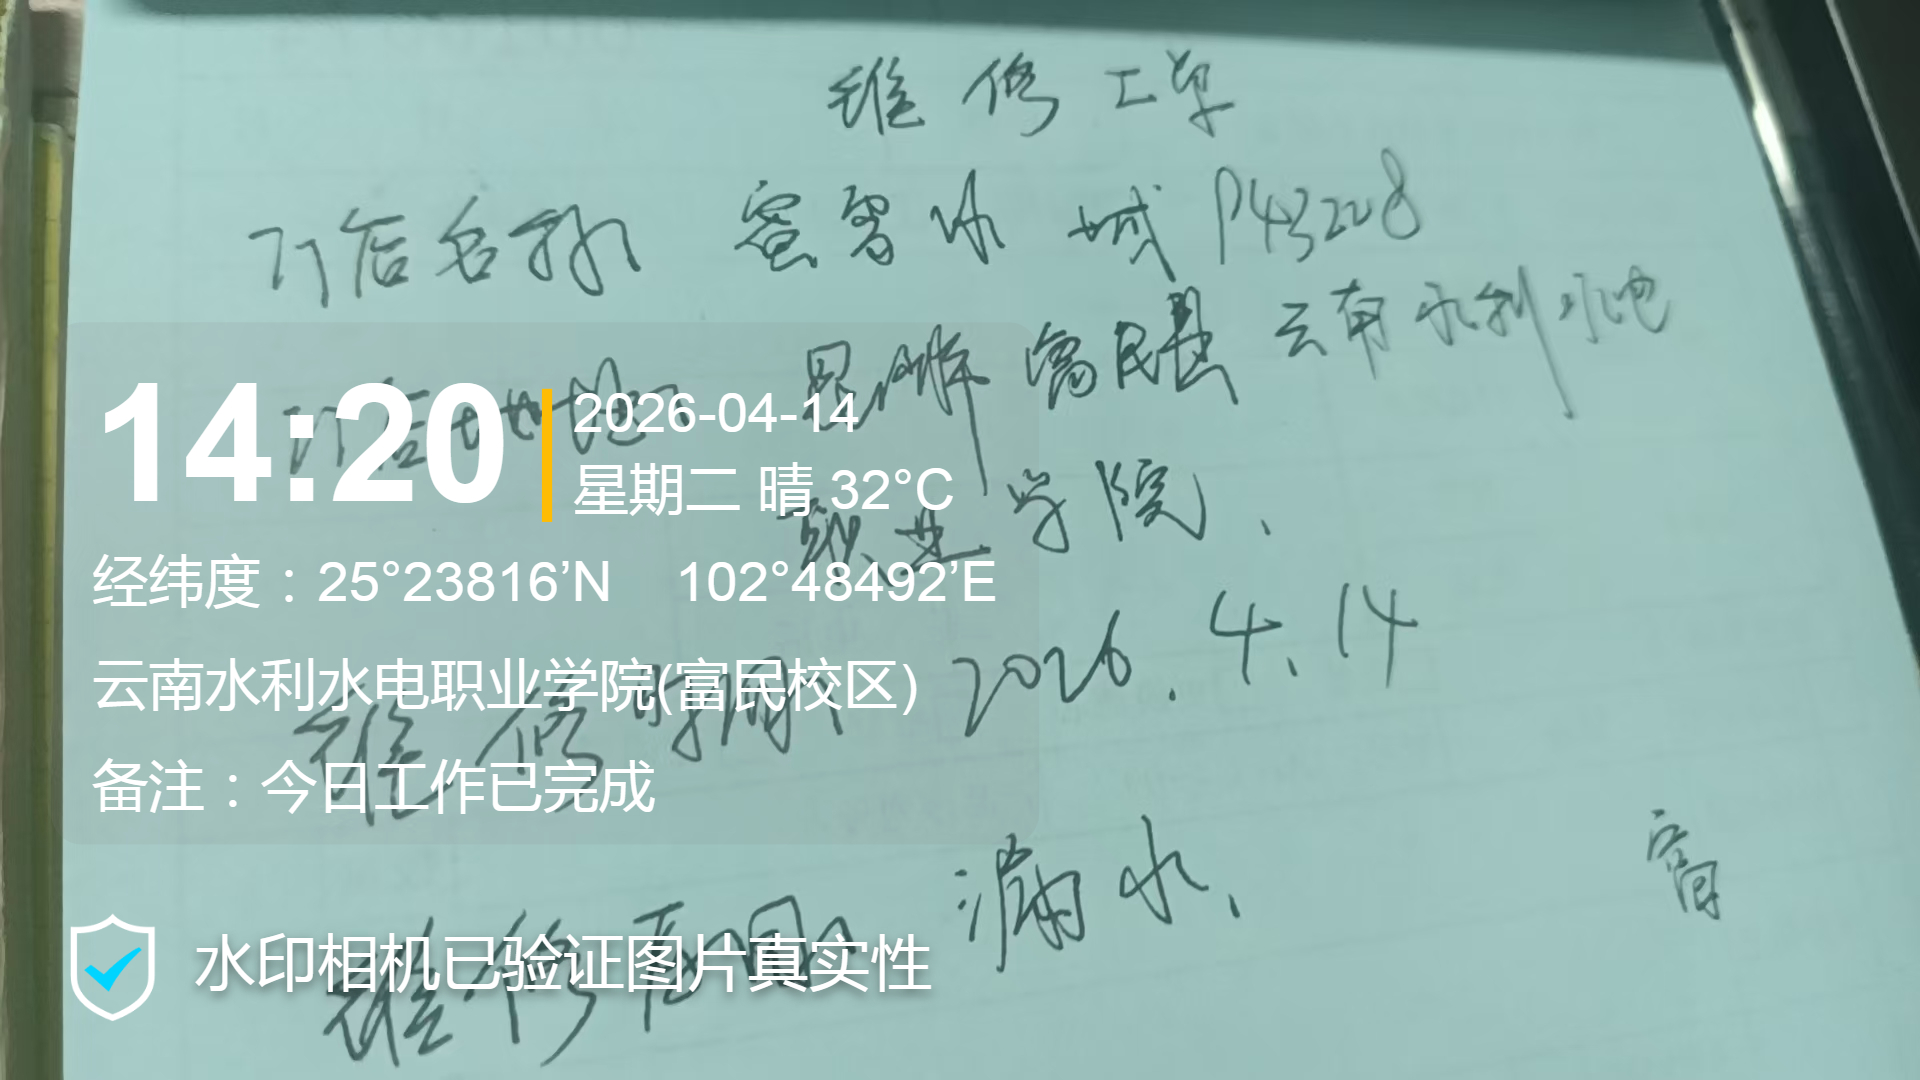 维修工单
门店名称 蜜雪冰城 P43228
门店地址 昆明市富民县云南水利水电
职业学院、
维修时间 2026.4.14
维修原因 漏水、
14:20
2026-04-14
星期二 晴 32°C
经纬度：25°23816’N 102°48492’E
云南水利水电职业学院(富民校区)
备注：今日工作已完成
水印相机已验证图片真实性